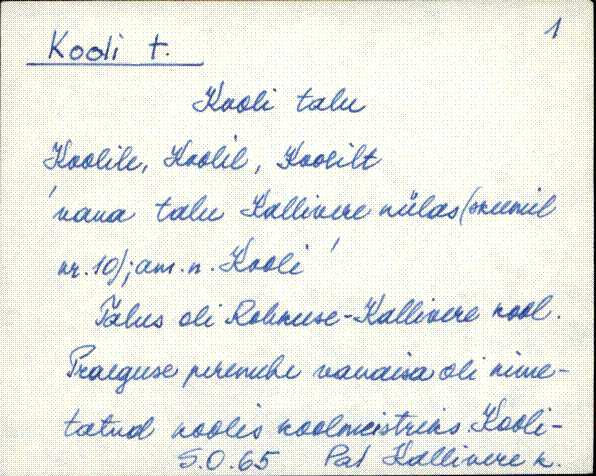 1
Kooli t.
Kooli talu
Koolile, Koolil, Koolilt
'vana talu Kallivere külas (skeemil
nr. 10); am. n. Kooli'
Talus oli Rohkuse-Kallivere kool.
Praeguse peremehe vanaisa oli nime-
tatud koolis koolmeistriks. Kooli-
S.O.65 Pal Kallivere k.